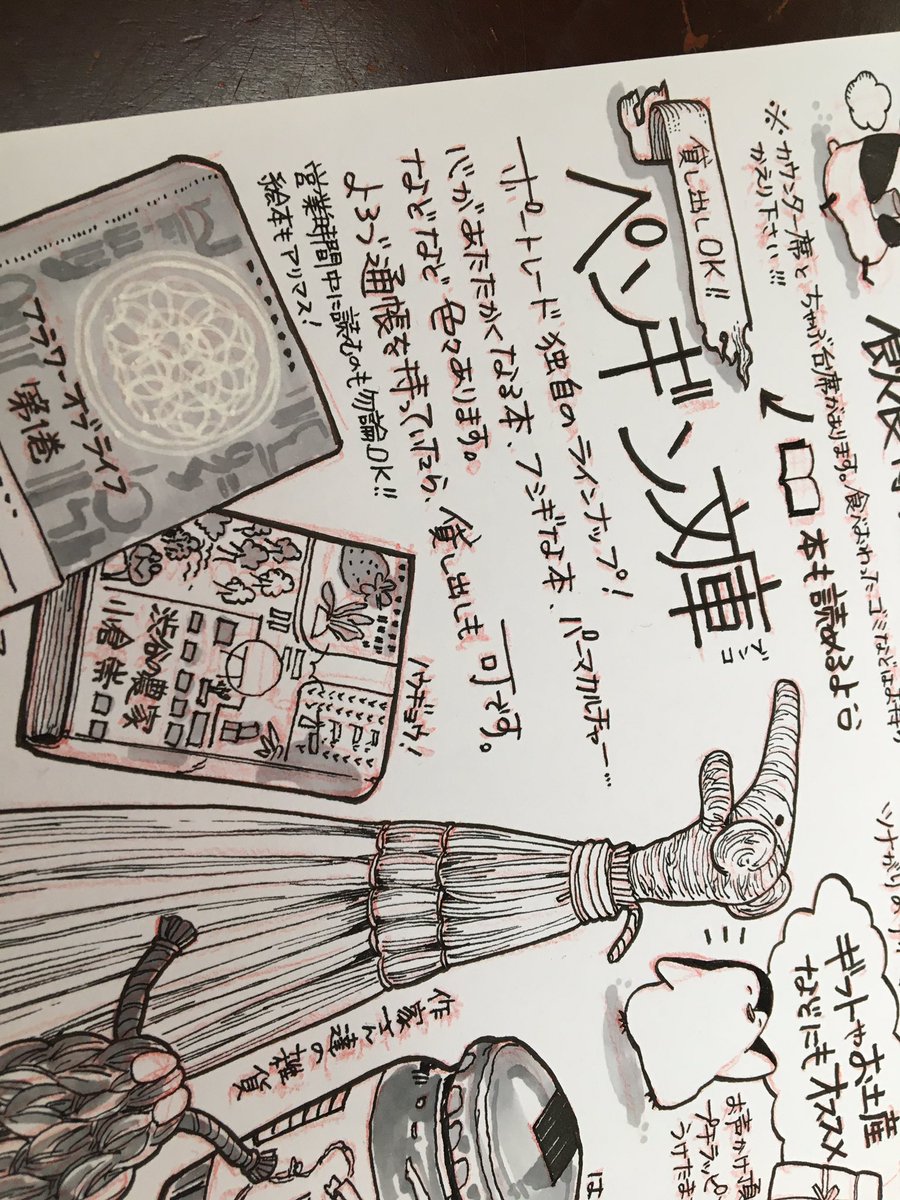 ※カウンター席とちゃぶ台席があります。食べおわったゴミなどはお持ち
かえり下さい!!!
貸し出しOK!!
本も読めるよ
ペンギン文庫
ブンコ
ポートレード独自のラインナップ!
心があたたかくなる本、フシギな本、パーマカルチャー…
などなど色々あります。
よろづ通帳を持っていたら、貸し出しも可です。
営業時間中に読むのも勿論OK!!
絵本もアリマス!
フラワーオブライフ
第1巻
渋谷の農家
小倉崇
ノウギョウ!
ギフトやお土産
などにもオススメ
お声かけ頂
プチラッピ
うけたま
作家さん達の雑貨